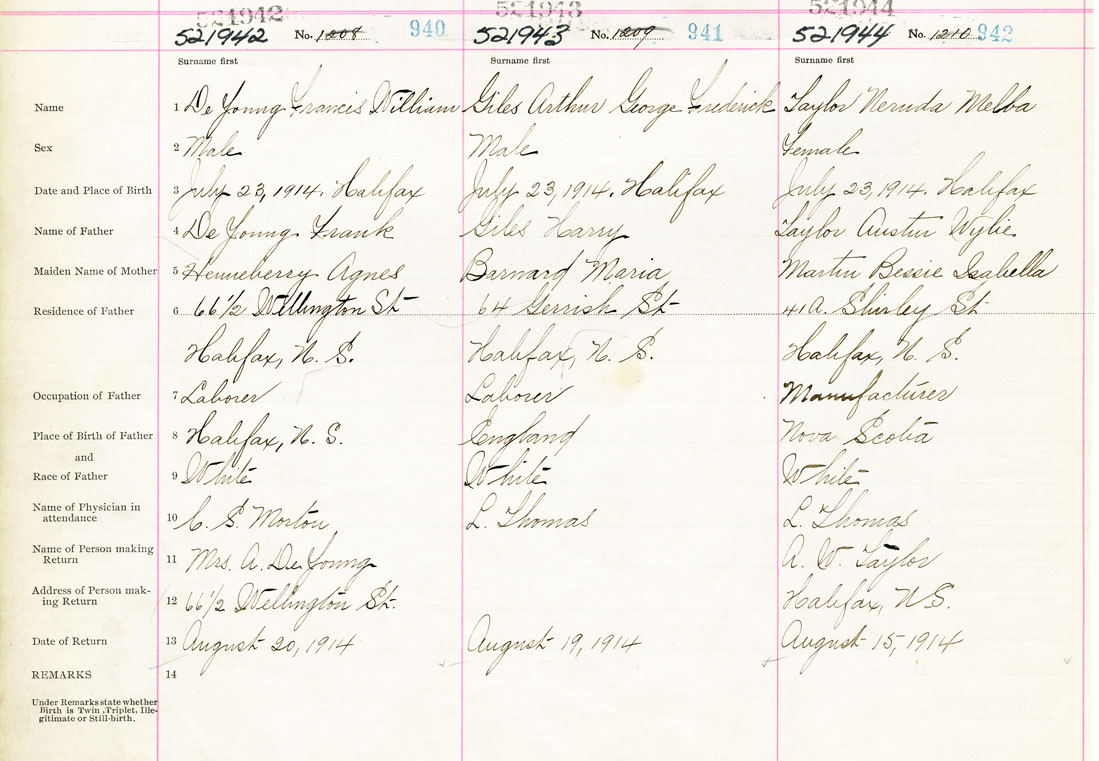 521942 521943 521944
521942 No. 1208 940 521943 No. 1209 941 521944 No. 1210 942
Surname first Surname first Surname first
Name 1 De Young Francis William Giles Arthur George Frederick Taylor Neruda Melba
Sex 2 Male Male Female
Date and Place of Birth 3 July 23, 1914. Halifax July 23, 1914. Halifax July 23, 1914. Halifax
Name of Father 4 De Young Frank Giles Harry Taylor Austin Wylie
Maiden Name of Mother 5 Henneberry Agnes Barnard Maria Martin Bessie Isabella
Residence of Father 6 66 1/2 Wellington St 64 Gerrish St 41A. Shirley St
Halifax, N. S. Halifax, N. S. Halifax, N. S.
Occupation of Father 7 Laborer Laborer Manufacturer
Place of Birth of Father 8 Halifax, N. S. England Nova Scotia
and
Race of Father 9 White White White
Name of Physician in
attendance 10 C. S. Morton L. Thomas L. Thomas
Name of Person making
Return 11 Mrs. A. De Young A. W. Taylor
Address of Person mak-
ing Return 12 66 1/2 Wellington St. Halifax, N S.
Date of Return 13 August 20, 1914 August 19, 1914 August 15, 1914
REMARKS 14
Under Remarks state whether
Birth is Twin, Triplet, Ille-
gitimate or Still-birth.